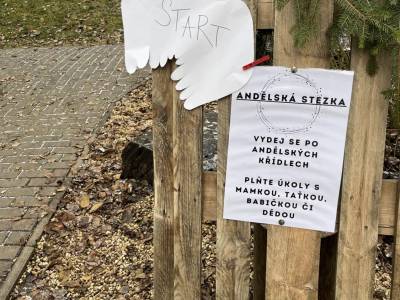 START
ANDĚLSKÁ STEZKA
VYDEJ SE PO
ANDĚLSKÝCH
KŘÍDLECH
PLŇTE ÚKOLY S
MAMKOU, TAŤKOU,
BABIČKOU ČI
DĚDOU